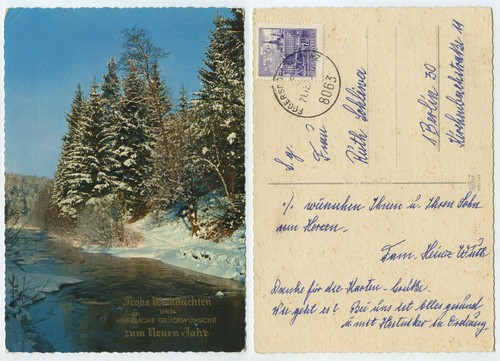 Frohe Weihnachten
UND
HERZLICHE GLÜCKWÜNSCHE
zum Neuen Jahr
8063
S. g.
Frau
Ruth
1 Berlin 30
11
% wünschen Ihnen u. Ihrem Sohn
von Herzen.
Fam. Heinz
Danke für die Karten-Grüße.
Wie geht es? Bei uns ist Alles gesund
u. mit in Ordnung